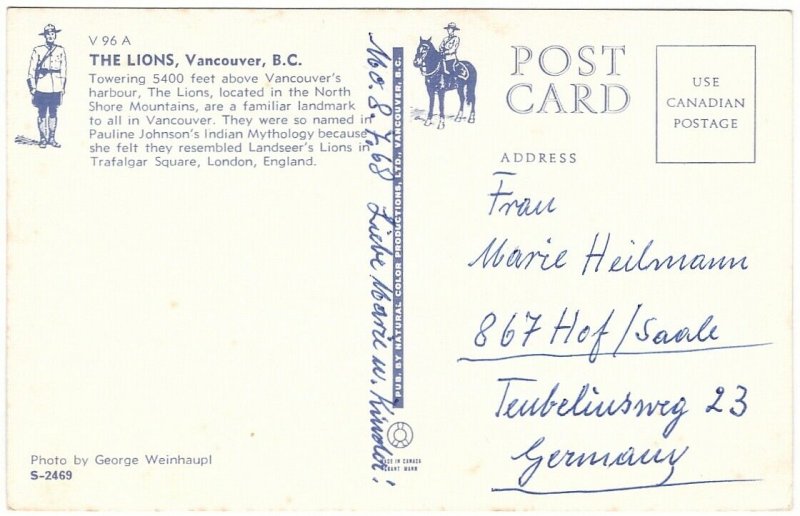 V 96 A
THE LIONS, Vancouver, B.C.
Towering 5400 feet above Vancouver's
harbour, The Lions, located in the North
Shore Mountains, are a familiar landmark
to all in Vancouver. They were so named in
Pauline Johnson's Indian Mythology because
she felt they resembled Landseer's Lions in
Trafalgar Square, London, England.
Photo by George Weinhaupl
S-2469
Mo. 8.7.68 Liebe Marie u. Kinder!
PUB. BY NATURAL COLOR PRODUCTIONS, LTD., VANCOUVER, B.C.
MADE IN CANADA
GRANT MANN
POST
CARD
USE
CANADIAN
POSTAGE
ADDRESS
Frau
Marie Heilmann
867 Hof/Saale
Teubeliusweg 23
Germany